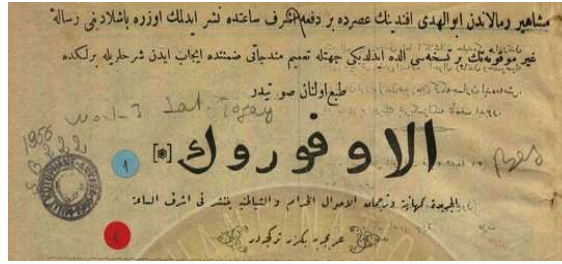 مشاهير رمالاندن ابوالهدى افندينك عصرده بر دفعه اشرف ساعتده نشر ايدلمك اوزره باشلاديغى رسالهٔ
غير موقوته‌نك بر نسخه‌سى الده ايدلديكى جهتله تعميم مندرجاتى ضمننده ايجاب ايدن شرحلريله برلكده
طبع اولنان صورتيدر
1956
الاوفوروك [*]
1
جريدة كهانية وترجمان الاحوال الحرام والشياطنه ينتشر فى اشرف الساعة
1
عربجه يكزر تركجه در